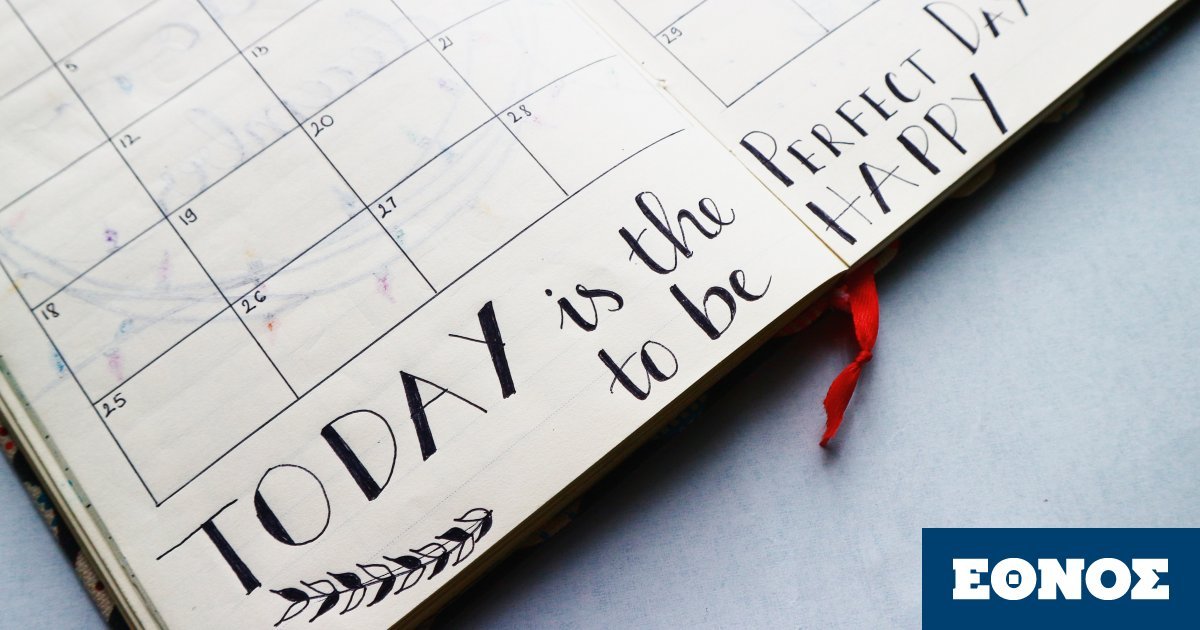 5
13
21
29
12
20
28
19
27
18
26
25
TODAY is the PERFECT DAY
to be HAPPY
ΕΘΝΟΣ